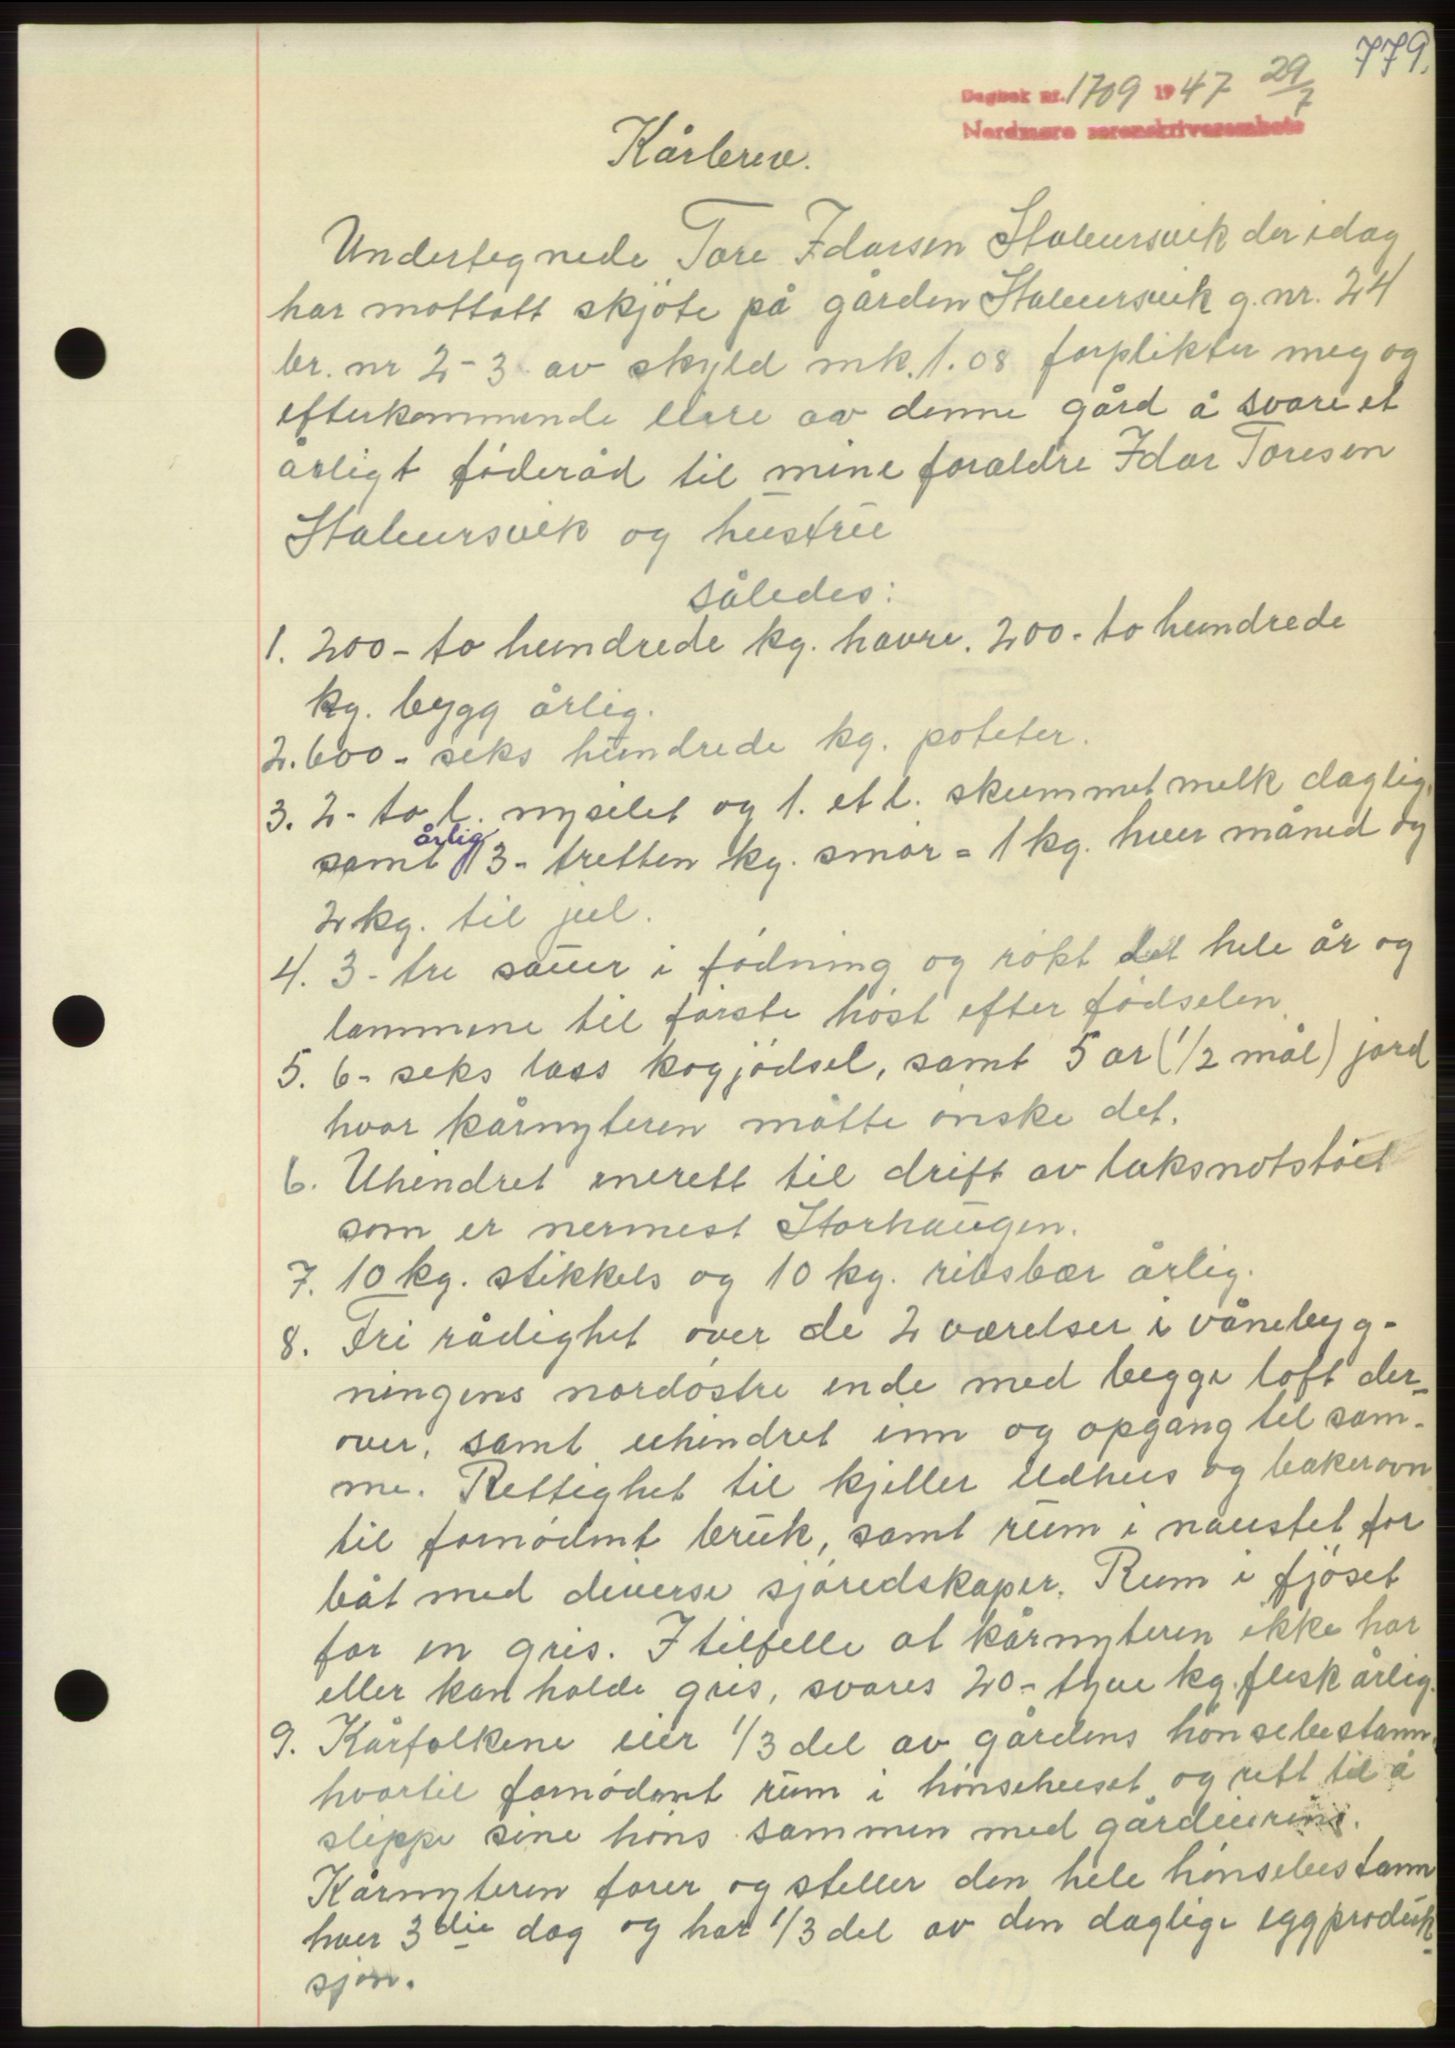 779.
Dagbok nr. 1709 1947 29/7
Nordmøre sorenskriverembete
Kårbrev.
Undertegnede Tore Idarsen Stavnesvik der idag
har mottatt skjöte på gården Stavnesvik g.nr. 24
br. nr 2-3 av skyld mk. 1.08 forplikter meg og
efterkommende eiere av denne gård å svare et
årligt föderåd til mine foreldre Idar Toresen
Stavnesvik og hustru
således:
1. 200 - to hundrede kg. havre. 200 - to hundrede
kg. bygg årlig.
2. 600 - seks hundrede kg. poteter.
3. 2 - to l. nysilet og 1. et l. skummet melk daglig,
samt årlig 13 - tretten kg. smör = 1 kg. hver måned og
2 kg. til jul.
4. 3 - tre sauer i födning og rökt det hele år og
lammene til förste höst efter födselen.
5. 6 - seks lass kogjödsel, samt 5 ar (1/2 mål) jord
hvor kårnyteren måtte önske det.
6. Uhindret enerett til drift av laksnotstöet
som er nermest Storhaugen.
7. 10 kg. stikkels og 10 kg. ribsbær årlig.
8. Fri rådighet over de 2 værelser i vånebyg-
ningens nordöstre ende med begge loft der-
over, samt uhindret inn og opgang til sam-
me. Rettighet til kjeller udhus og bakerovn
til fornödent bruk, samt rum i naustet for
båt med diverse sjöredskaper. Rum i fjöset
for en gris. I tilfelle at kårnyteren ikke har
eller kan holde gris, svares 20 - tyve kg. flesk årlig.
9. Kårfolkene eier 1/3 del av gårdens hönsebestann,
hvortil fornödent rum i hönsehuset og rett til å
slippe sine höns sammen med gårdeierens.
Kårnyteren forer og steller den hele hönsebestann
hver 3die dag og har 1/3 del av den daglige eggproduk-
sjon.